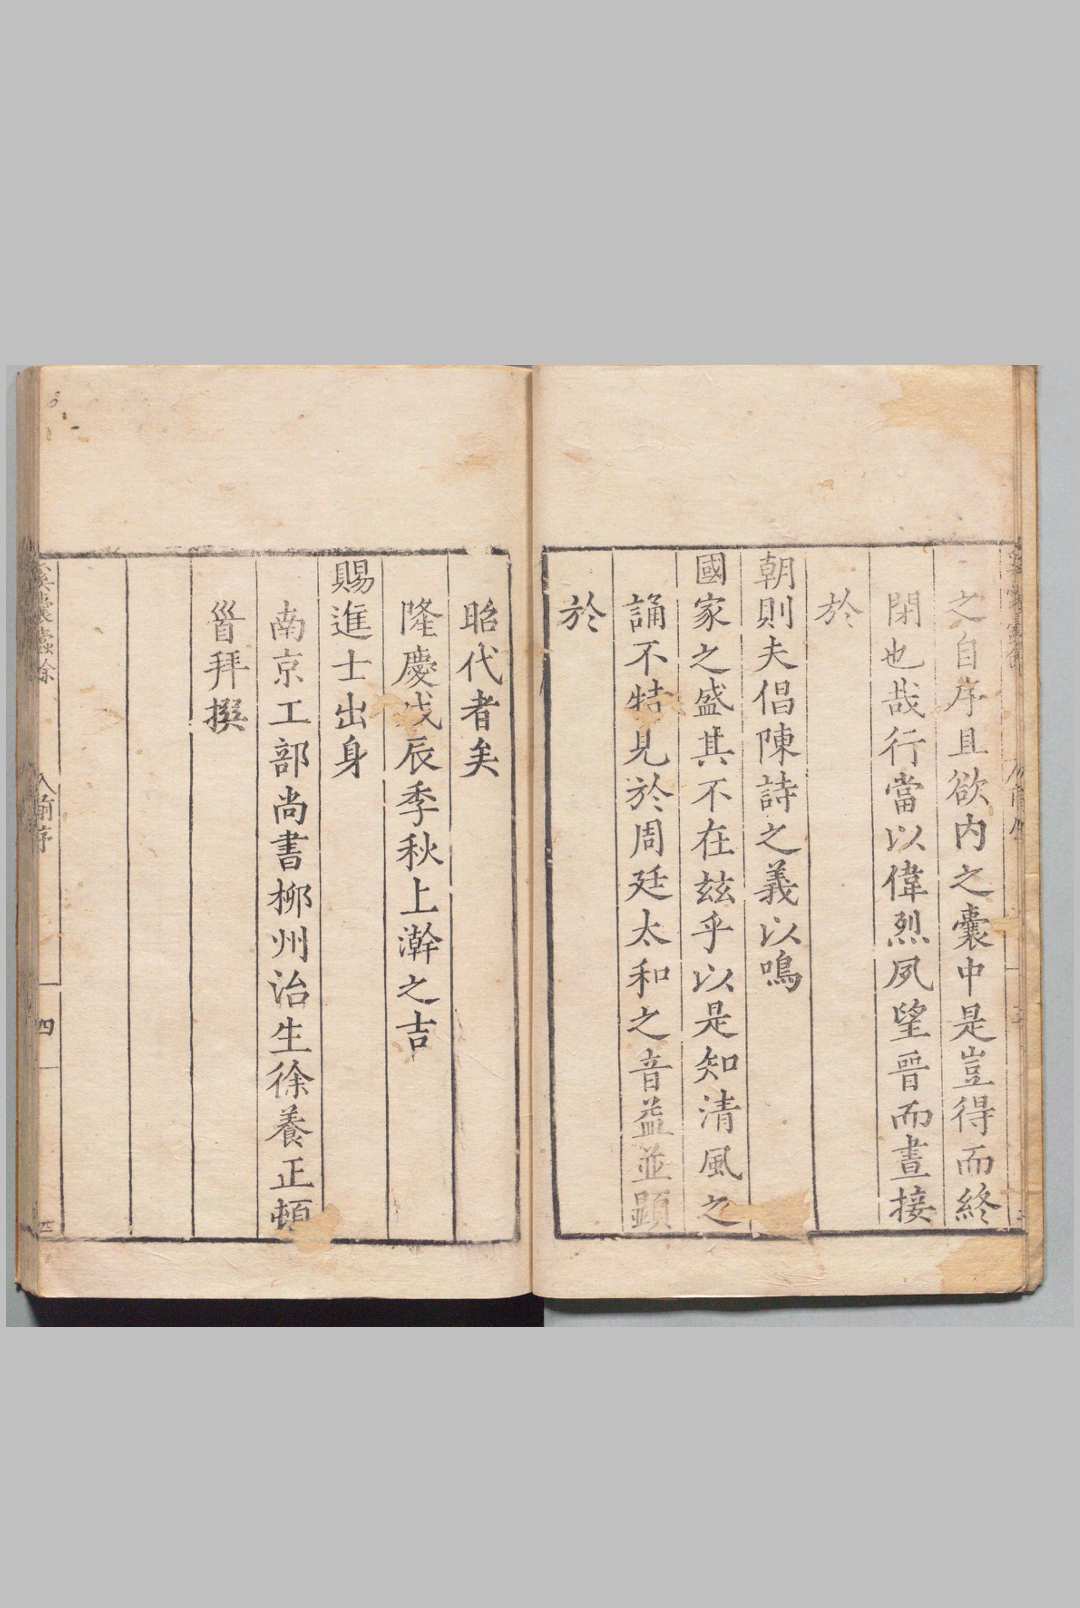 之自序且欲内之囊中是豈得而終
閉也哉行當以偉烈夙望晉而晝接
於
朝則夫倡陳詩之義以鳴
國家之盛其不在兹乎以是知清風之
誦不特見於周廷太和之音益並顯
於
昭代者矣
隆慶戊辰季秋上澣之吉
賜進士出身
南京工部尚書柳州治生徐養正頓
首拜撰
囊蠧餘
前序
四